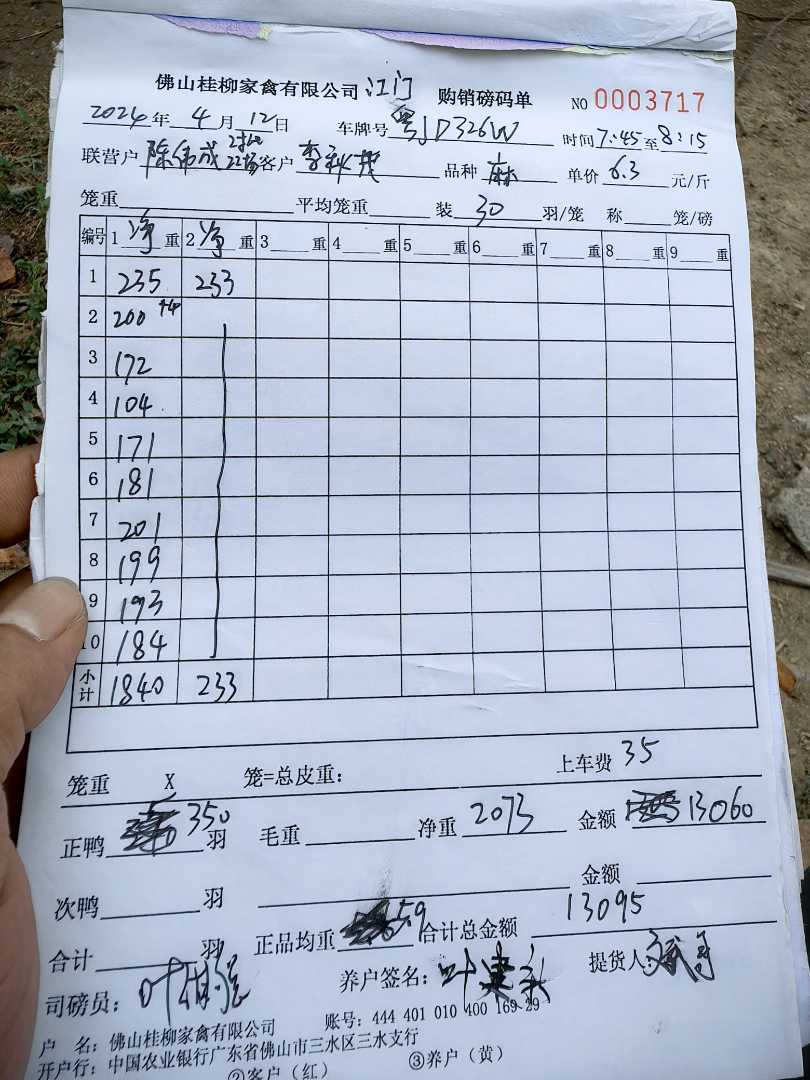 佛山桂柳家禽有限公司 江门 购销磅码单 NO 0003717
2024年 4月 12日 车牌号 粤JD326W 时间 7:45 至 8:15
联营户 陈伟成 客户 李 品种 麻 单价 6.3 元/斤
笼重 平均笼重 装 30 羽/笼 称 笼/磅
编号 1 净 重 2 净 重 3 重 4 重 5 重 6 重 7 重 8 重 9 重
1 235 233
2 200
3 172
4 104
5 171
6 181
7 201
8 199
9 193
10 184
小计 1840 233
笼重 X 笼=总皮重: 上车费 35
正鸭 350 羽 毛重 净重 2073 金额 13060
次鸭 羽 金额
合计 羽 正品均重 5.9 合计总金额 13095
司磅员: 叶 养户签名: 叶建 提货人:
户 名: 佛山桂柳家禽有限公司 账号: 444 401 010 400 169 29
开户行: 中国农业银行广东省佛山市三水区三水支行
②客户（红） ③养户（黄）